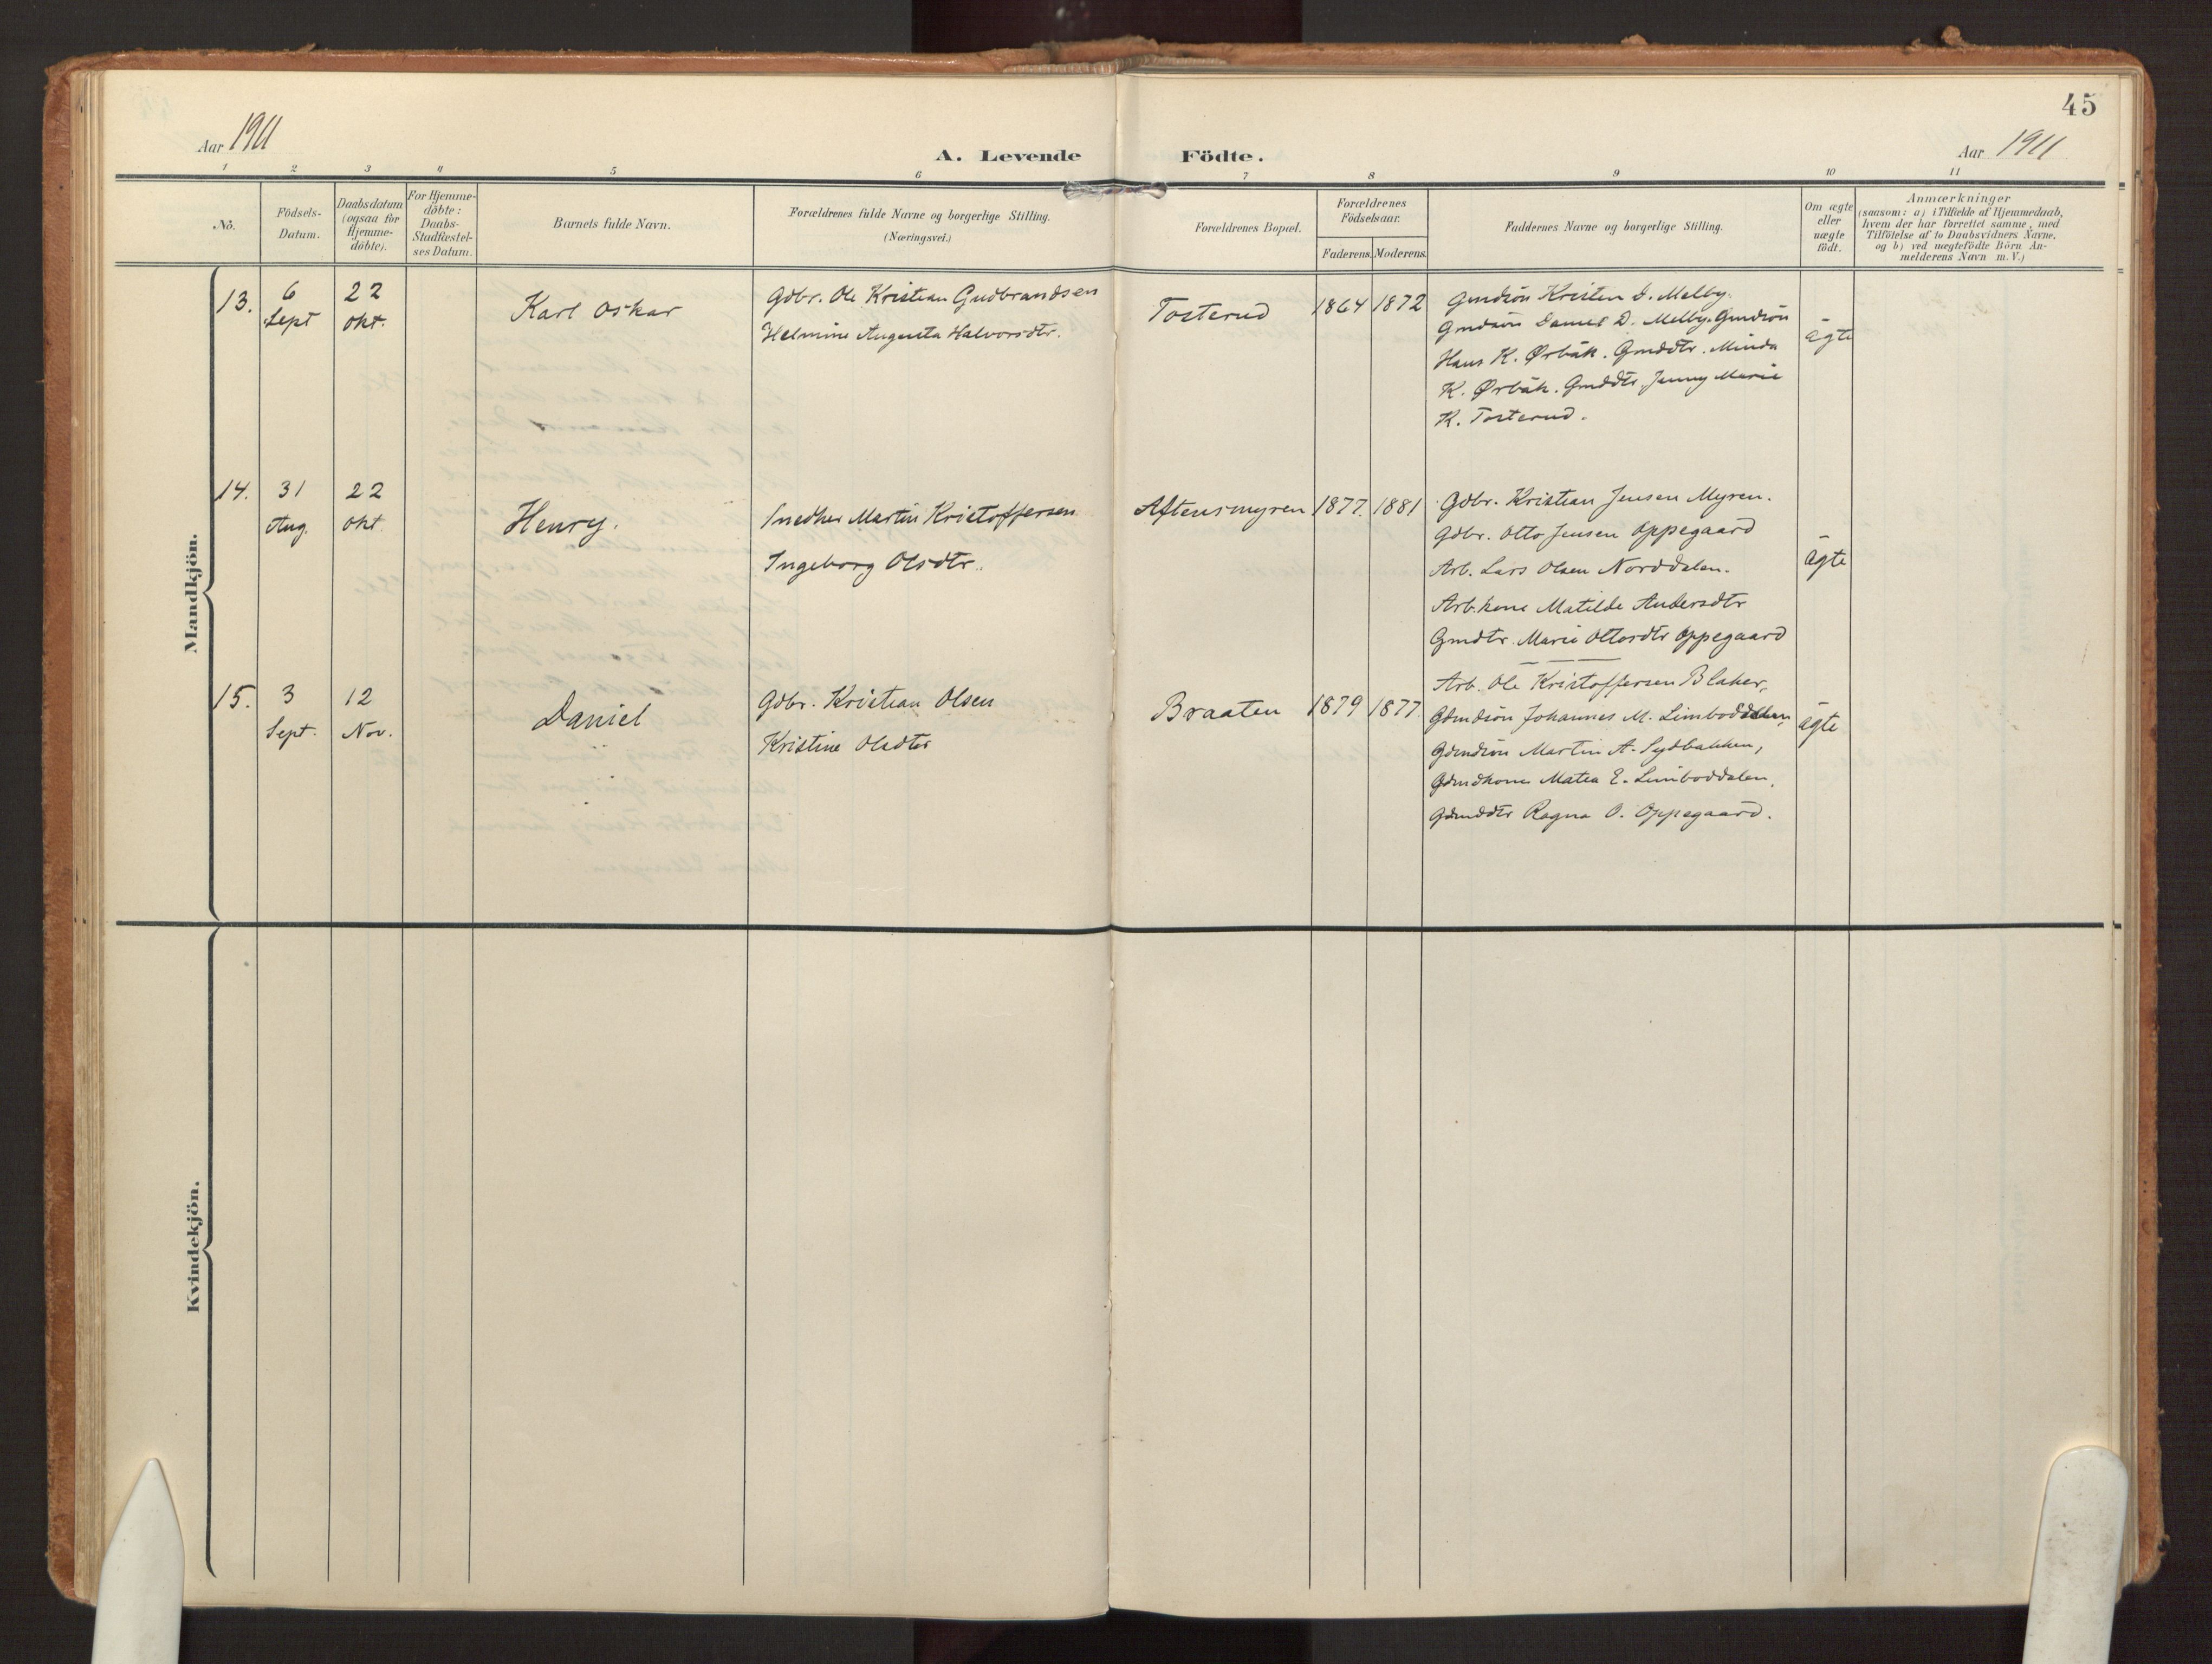 45
Aar 1911
A. Levende Födte.
Aar 1911
1 2 3 4 5 6 7 8 9 10 11
No.
Födsels-
Datum.
Daabsdatum
(ogsaa for
Hjemme-
döbte).
For Hjemme-
döbte:
Daabs-
Stadfæstel-
ses Datum.
Barnets fulde Navn.
Forældrenes fulde Navne og borgerlige Stilling.
(Næringsvei.)
Forældrenes Bopæl.
Forældrenes
Födselsaar.
Faderens. Moderens.
Faddernes Navne og borgerlige Stilling.
Om ægte
eller
uægte
födt.
Anmærkninger
(saasom: a) i Tilfælde af Hjemmedaab,
hvem der har forrettet samme, med
Tilföielse af to Daabsvidners Navne,
og b) ved uægtefödte Börn An-
melderens Navn m. V.)
Mandkjön.
13.
6
Sept
22
Okt.
Karl Oskar
Gdbr. Ole Kristian Gudbrandsen
Helmine Augusta Halvorsdtr.
Tosterud
1864 1872
Gmdsön Kristen D. Melby.
Gmdsön Daniel D. Melby. Gmdsön
Hans K. Ørbäk. Gmddtr. Minda
K. Ørbäk. Gmddtr. Jenny Marie
K. Tosterud.
ägte
14.
31
Aug.
22
Okt
Henry.
Snedker Martin Kristoffersen
Ingeborg Olsdtr.
Aftensmyren
1877. 1881
Gdbr. Kristian Jensen Myren.
Gdbr. Otto Jensen Oppegaard
Arb. Lars Olsen Norddalen.
Arb.kone Matilde Andersdtr
Gmdtr. Marie Ottosdtr Oppegaard
ägte
15.
3
Sept.
12
Nov.
Daniel
Gdbr. Kristian Olsen
Kristine Olsdtr
Braaten
1879 1877.
Arb. Ole Kristoffersen Blaker,
Gdmdsön Johannes M. Limboddalen,
Gdmdsön Martin A. Sydbakken,
Gdmdkone Matea E. Limboddalen.
Gdmddtr Ragna O. Oppegaard.
ägte
Kvindekjön.